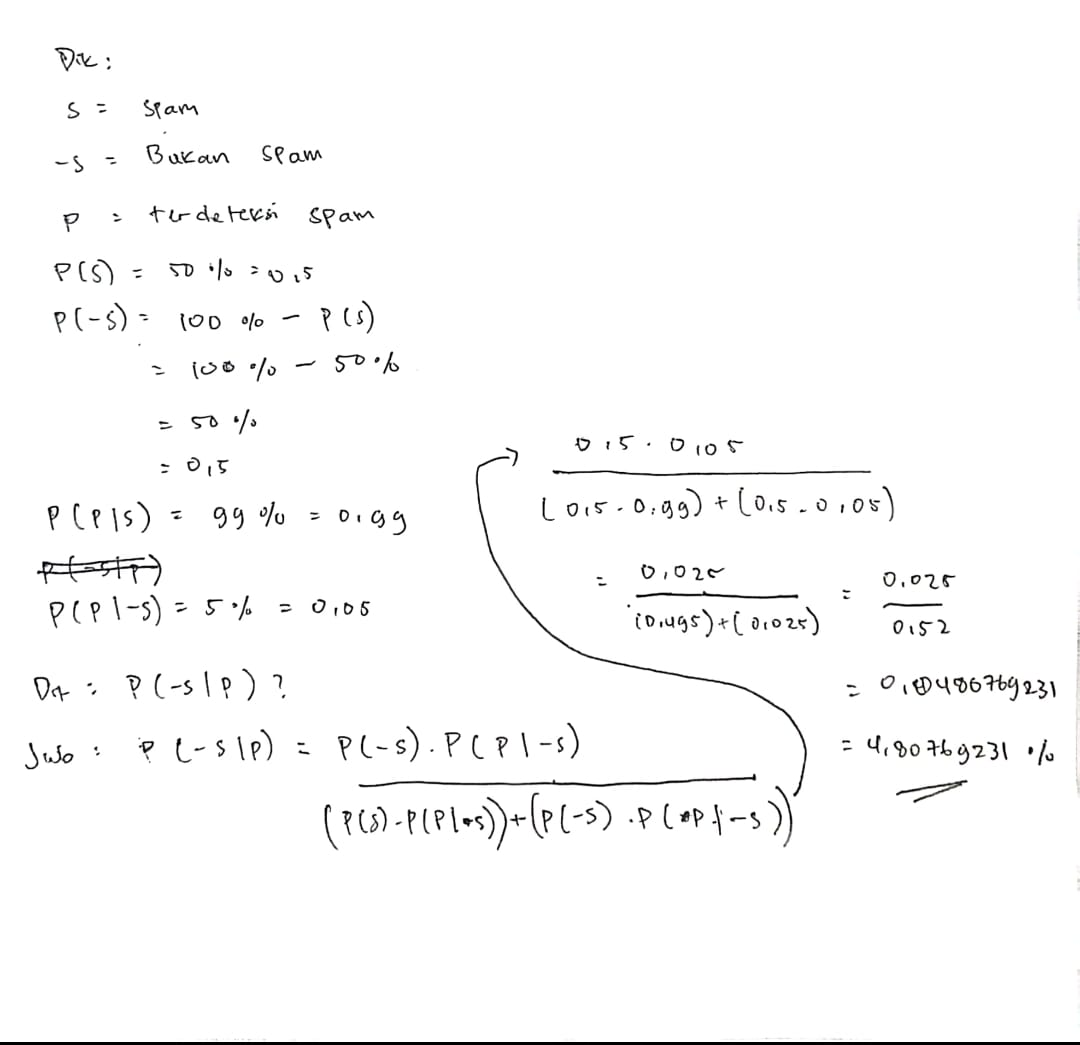 Dik :
S = Spam
-S = Bukan spam
P = terdeteksi spam
P(S) = 50 % = 0,5
P(-S) = 100 % - P(S)
= 100 % - 50 %
= 50 %
= 0,5
P(P|S) = 99 % = 0,99
P(-S|P)
P(P|-S) = 5 % = 0,05
Dit : P(-S|P) ?
Jwb : P(-S|P) = P(-S) . P(P|-S)
(P(S) . P(P|S)) + (P(-S) . P(P|-S))
0,5 . 0,05
(0,5 . 0,99) + (0,5 . 0,05)
= 0,025
(0,495) + (0,025)
= 0,025
0,52
= 0,0480769231
= 4,80769231 %